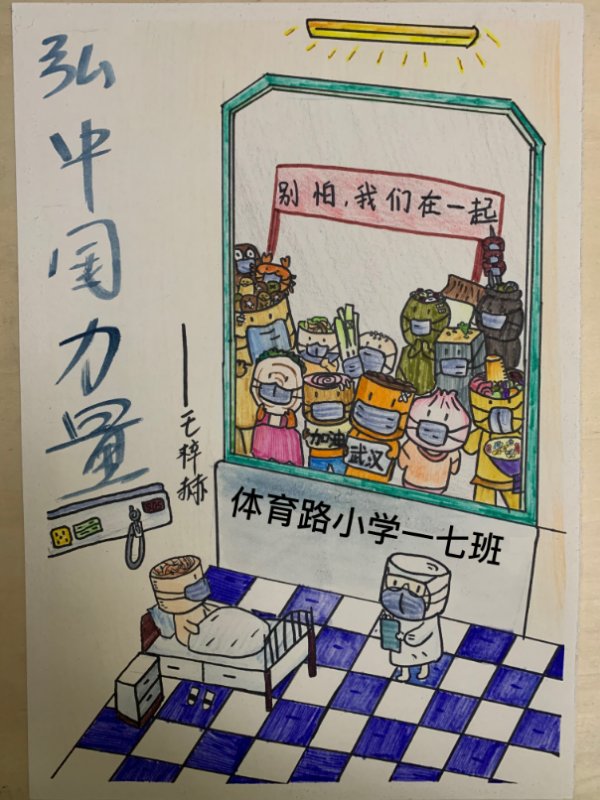 弘中国力量
别怕，我们在一起
加油
武汉
体育路小学一七班